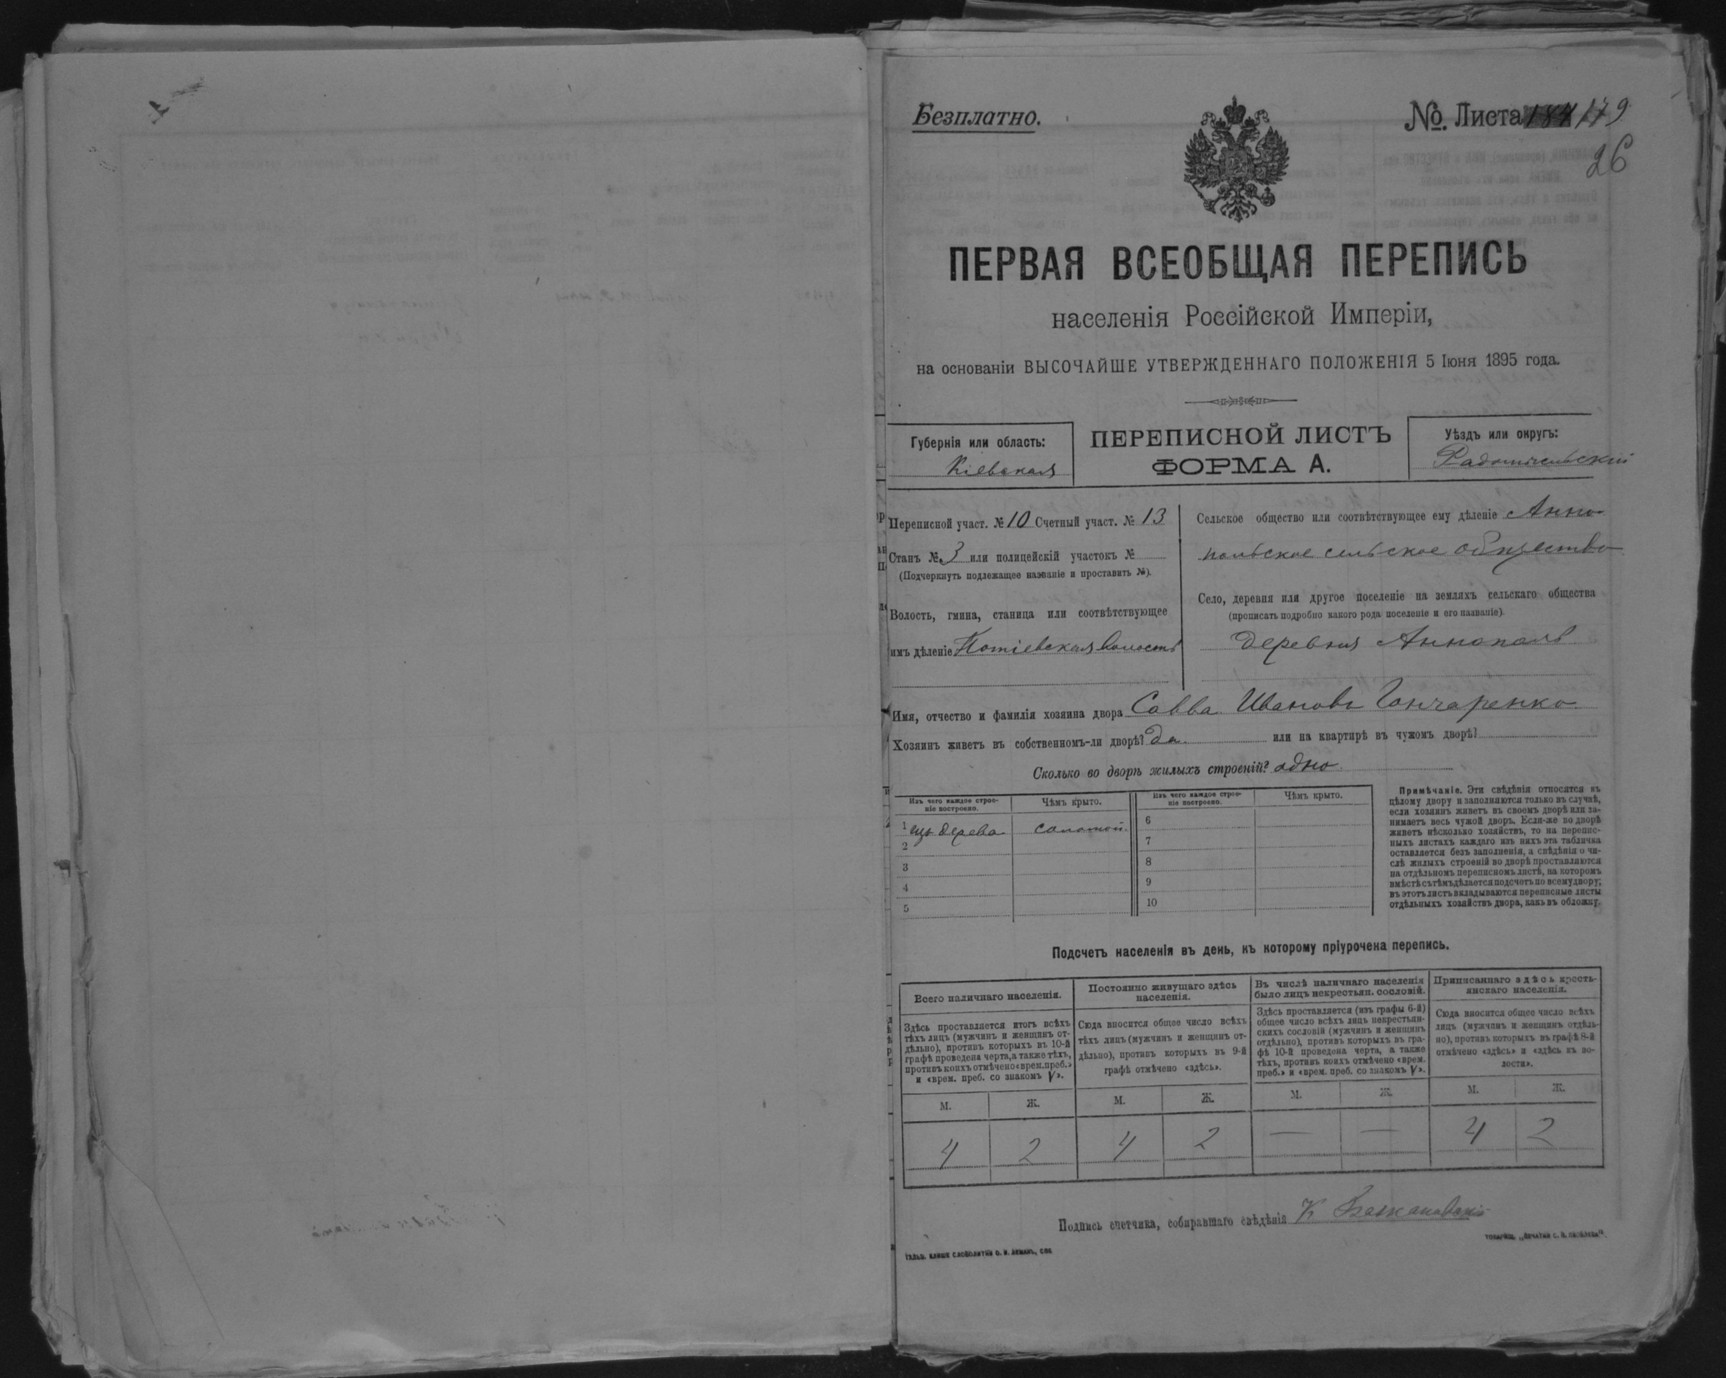 Безплатно.
№ Листа 179
26
ПЕРВАЯ ВСЕОБЩАЯ ПЕРЕПИСЬ
населенія Россійской Имперіи,
на основаніи ВЫСОЧАЙШЕ УТВЕРЖДЕННАГО ПОЛОЖЕНІЯ 5 Іюня 1895 года.
Губернія или область:
Кіевская
ПЕРЕПИСНОЙ ЛИСТЪ
ФОРМА А.
Уѣздъ или округъ:
Радомысльскій
Переписной участ. № 10 Счетный участ. № 13
Станъ № 3 или полицейскій участокъ №
(Подчеркнуть подлежащее названіе и проставить №).
Волость, гмина, станица или соотвѣтствующее
имъ дѣленіе Потіевская волость
Сельское общество или соотвѣтствующее ему дѣленіе Анно-
польское сельское общество
Село, деревня или другое поселеніе на земляхъ сельскаго общества
(прописать подробно какого рода поселеніе и его названіе).
деревня Аннополь
Имя, отчество и фамилія хозяина двора Савва Ивановъ Гончаренко
Хозяинъ живетъ въ собственномъ-ли дворѣ? да или на квартирѣ въ чужомъ дворѣ?
Сколько во дворѣ жилыхъ строеній? одно
Изъ чего каждое строе-
ніе построено.
Чѣмъ крыто.
Изъ чего каждое строе-
ніе построено.
Чѣмъ крыто.
1 изъ дерева соломой
2
3
4
5
6
7
8
9
10
Примѣчаніе. Эти свѣдѣнія относятся къ
цѣлому двору и заполняются только въ случаѣ,
если хозяинъ живетъ въ своемъ дворѣ или за-
нимаетъ весь чужой дворъ. Если-же во дворѣ
живетъ нѣсколько хозяйствъ, то на перепис-
ныхъ листахъ каждаго изъ нихъ эта табличка
оставляется безъ заполненія, а свѣдѣнія о чи-
слѣ жилыхъ строеній во дворѣ проставляются
на отдѣльномъ переписномъ листѣ, на которомъ
вмѣстѣ съ тѣмъ дѣлается подсчетъ по всему двору;
въ этотъ листъ вкладываются переписные листы
отдѣльныхъ хозяйствъ двора, какъ въ обложку.
Подсчетъ населенія въ день, къ которому пріурочена перепись.
Всего наличнаго населенія.
Здѣсь проставляется итогъ всѣхъ
тѣхъ лицъ (мужчинъ и женщинъ от-
дѣльно), противъ которыхъ въ 10-й
графѣ проведена черта, а также тѣхъ,
противъ коихъ отмѣчено «врем. преб.»
и «врем. преб. со знакомъ V».
Постоянно живущаго здѣсь
населенія.
Сюда вносится общее число всѣхъ
тѣхъ лицъ (мужчинъ и женщинъ от-
дѣльно), противъ которыхъ въ 9-й
графѣ отмѣчено «здѣсь».
Въ числѣ наличнаго населенія
было лицъ некрестьян. сословій.
Здѣсь проставляется (изъ графы 6-й)
общее число всѣхъ лицъ некрестьян-
скихъ сословій (мужчинъ и женщинъ
отдѣльно), противъ которыхъ въ гра-
фѣ 10-й проведена черта, а также
тѣхъ, противъ коихъ отмѣчено «врем.
преб.» и «врем. преб. со знакомъ V».
Приписаннаго здѣсь кресть-
янскаго населенія.
Сюда вносится общее число всѣхъ
лицъ (мужчинъ и женщинъ отдѣль-
но), противъ которыхъ въ графѣ 8-й
отмѣчено «здѣсь» и «здѣсь въ во-
лости».
М. Ж. М. Ж. М. Ж. М. Ж.
4 2 4 2 — — 4 2
Подпись счетчика, собиравшаго свѣдѣнія К